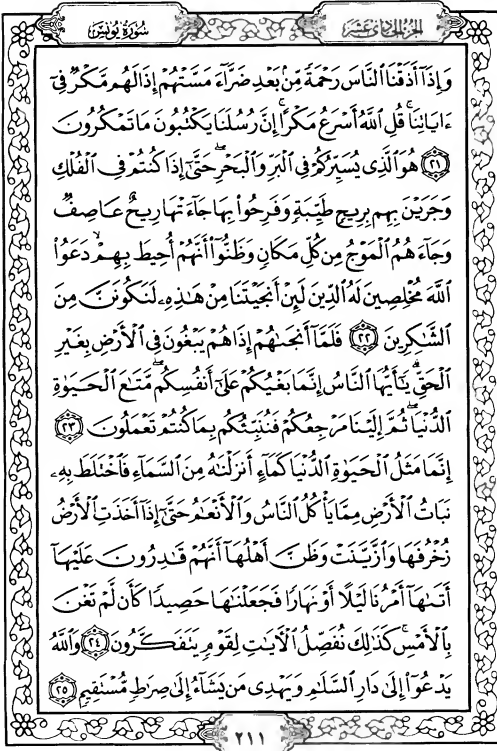 سُورَةُ يُونُسَ
الجزء الحادي عشر
وَإِذَآ أَذَقْنَا ٱلنَّاسَ رَحْمَةً مِّنۢ بَعْدِ ضَرَّآءَ مَسَّتْهُمْ إِذَا لَهُم مَّكْرٌ فِىٓ
ءَايَاتِنَا ۚ قُلِ ٱللَّهُ أَسْرَعُ مَكْرًا ۚ إِنَّ رُسُلَنَا يَكْتُبُونَ مَا تَمْكُرُونَ
٢١ هُوَ ٱلَّذِى يُسَيِّرُكُمْ فِى ٱلْبَرِّ وَٱلْبَحْرِ ۖ حَتَّىٰٓ إِذَا كُنتُمْ فِى ٱلْفُلْكِ
وَجَرَيْنَ بِهِم بِرِيحٍ طَيِّبَةٍ وَفَرِحُوا۟ بِهَا جَآءَتْهَا رِيحٌ عَاصِفٌ
وَجَآءَهُمُ ٱلْمَوْجُ مِن كُلِّ مَكَانٍ وَظَنُّوٓا۟ أَنَّهُمْ أُحِيطَ بِهِمْ ۙ دَعَوُا۟
ٱللَّهَ مُخْلِصِينَ لَهُ ٱلدِّينَ لَئِنْ أَنجَيْتَنَا مِنْ هَـٰذِهِۦ لَنَكُونَنَّ مِنَ
ٱلشَّـٰكِرِينَ ٢٢ فَلَمَّآ أَنجَىٰهُمْ إِذَا هُمْ يَبْغُونَ فِى ٱلْأَرْضِ بِغَيْرِ
ٱلْحَقِّ ۗ يَـٰٓأَيُّهَا ٱلنَّاسُ إِنَّمَا بَغْيُكُمْ عَلَىٰٓ أَنفُسِكُم ۖ مَّتَـٰعَ ٱلْحَيَوٰةِ
ٱلدُّنْيَا ۖ ثُمَّ إِلَيْنَا مَرْجِعُكُمْ فَنُنَبِّئُكُم بِمَا كُنتُمْ تَعْمَلُونَ ٢٣
إِنَّمَا مَثَلُ ٱلْحَيَوٰةِ ٱلدُّنْيَا كَمَآءٍ أَنزَلْنَـٰهُ مِنَ ٱلسَّمَآءِ فَٱخْتَلَطَ بِهِۦ
نَبَاتُ ٱلْأَرْضِ مِمَّا يَأْكُلُ ٱلنَّاسُ وَٱلْأَنْعَـٰمُ حَتَّىٰٓ إِذَآ أَخَذَتِ ٱلْأَرْضُ
زُخْرُفَهَا وَٱزَّيَّنَتْ وَظَنَّ أَهْلُهَآ أَنَّهُمْ قَـٰدِرُونَ عَلَيْهَآ
أَتَىٰهَآ أَمْرُنَا لَيْلًا أَوْ نَهَارًا فَجَعَلْنَـٰهَا حَصِيدًا كَأَن لَّمْ تَغْنَ
بِٱلْأَمْسِ ۚ كَذَٰلِكَ نُفَصِّلُ ٱلْـَٔايَـٰتِ لِقَوْمٍ يَتَفَكَّرُونَ ٢٤ وَٱللَّهُ
يَدْعُوٓا۟ إِلَىٰ دَارِ ٱلسَّلَـٰمِ وَيَهْدِى مَن يَشَآءُ إِلَىٰ صِرَٰطٍ مُّسْتَقِيمٍ ٢٥
٢١١